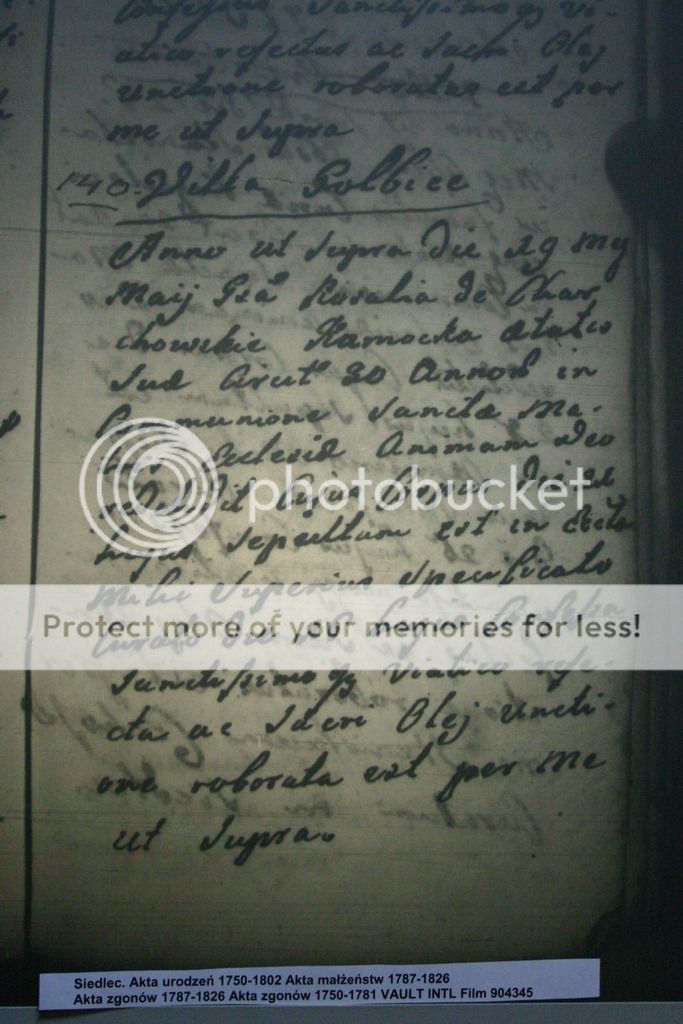 Confessus Sanctissimoqz Vi-
atico refectus ac Sacri Olej
Unctione roboratus est per
me ut Supra
140. Villa Golbice
Anno ut Supra die 29 My
Maij Gsa Rosalia de Char
chowskie Kamocka ætatis
Suæ Circit 30 Annor in
Communione Sanctæ Ma-
Ecclesiæ Animam Deo
reddidit Cujus Corpus die
hujus Sepultum est in
Mihi Superius Specificato
Curato
Sanctissimoqz Viatico refe-
cta ac Sacri Olej Uncti-
one roborata est per Me
ut Supra.
photobucket
Protect more of your memories for less!
Siedlec. Akta urodzeń 1750-1802 Akta małżeństw 1787-1826
Akta zgonów 1787-1826 Akta zgonów 1750-1781 VAULT INTL Film 904345